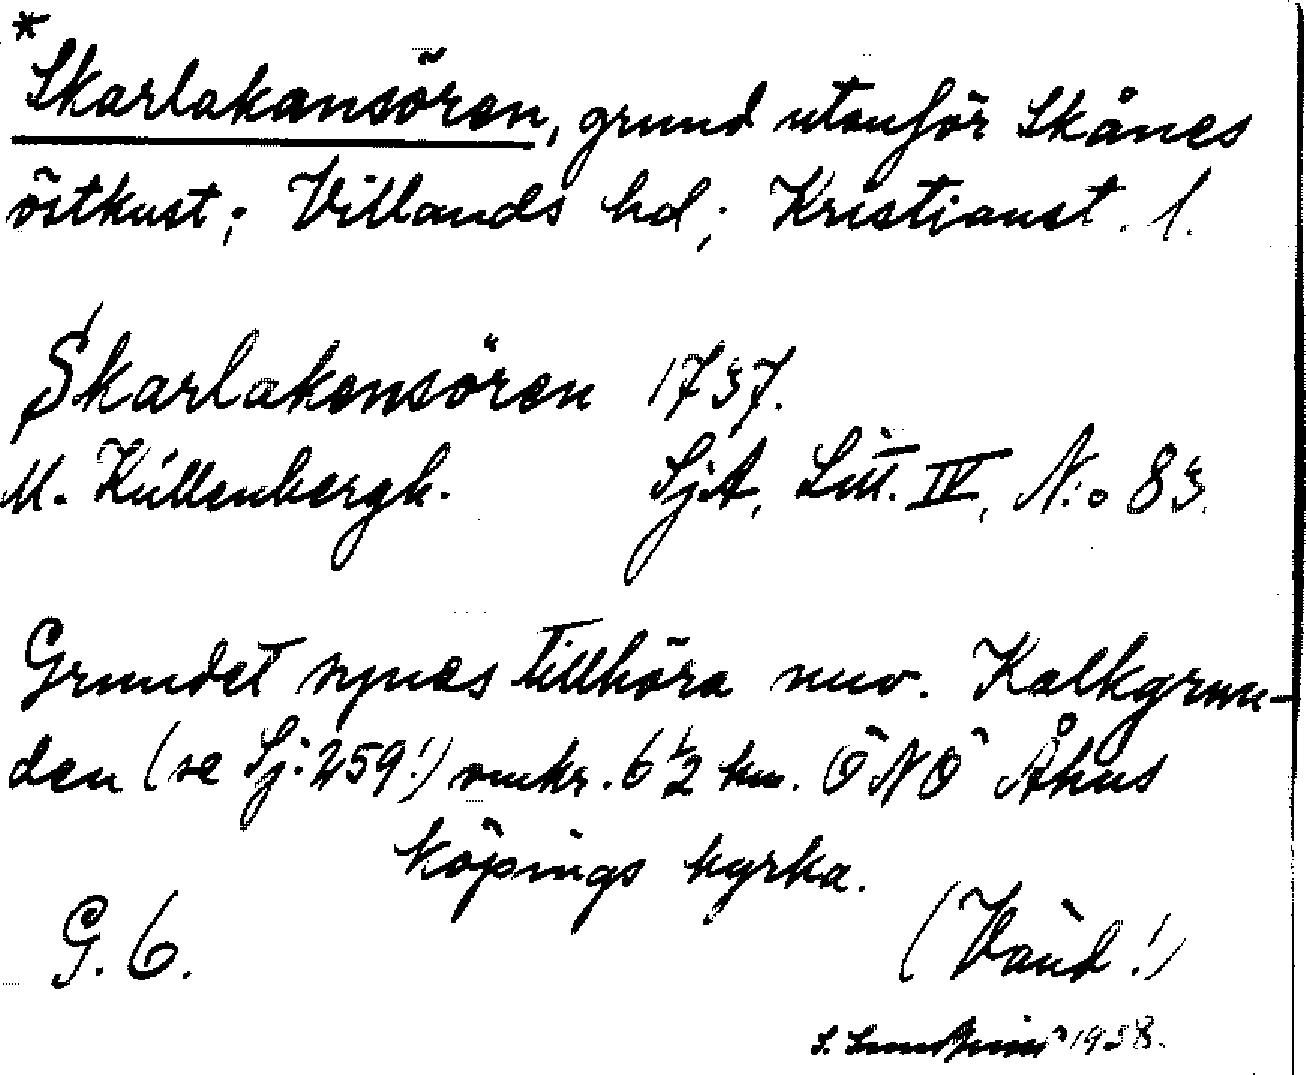 *
Skarlakansören, grund utanför Skånes
östkust; Villands hd; Kristianst. l.
Skarlakensören 1737.
M. Küllenbergh. SjA, Litt. IV, N:o 83.
Grundet synes tillhöra nuv. Kalkgrun-
den (se Sj. 259!) omkr. 6 1/2 km. ÖNÖ Åhus
köpings kyrka.
G. 6. (Vänd!)
S. 1938.